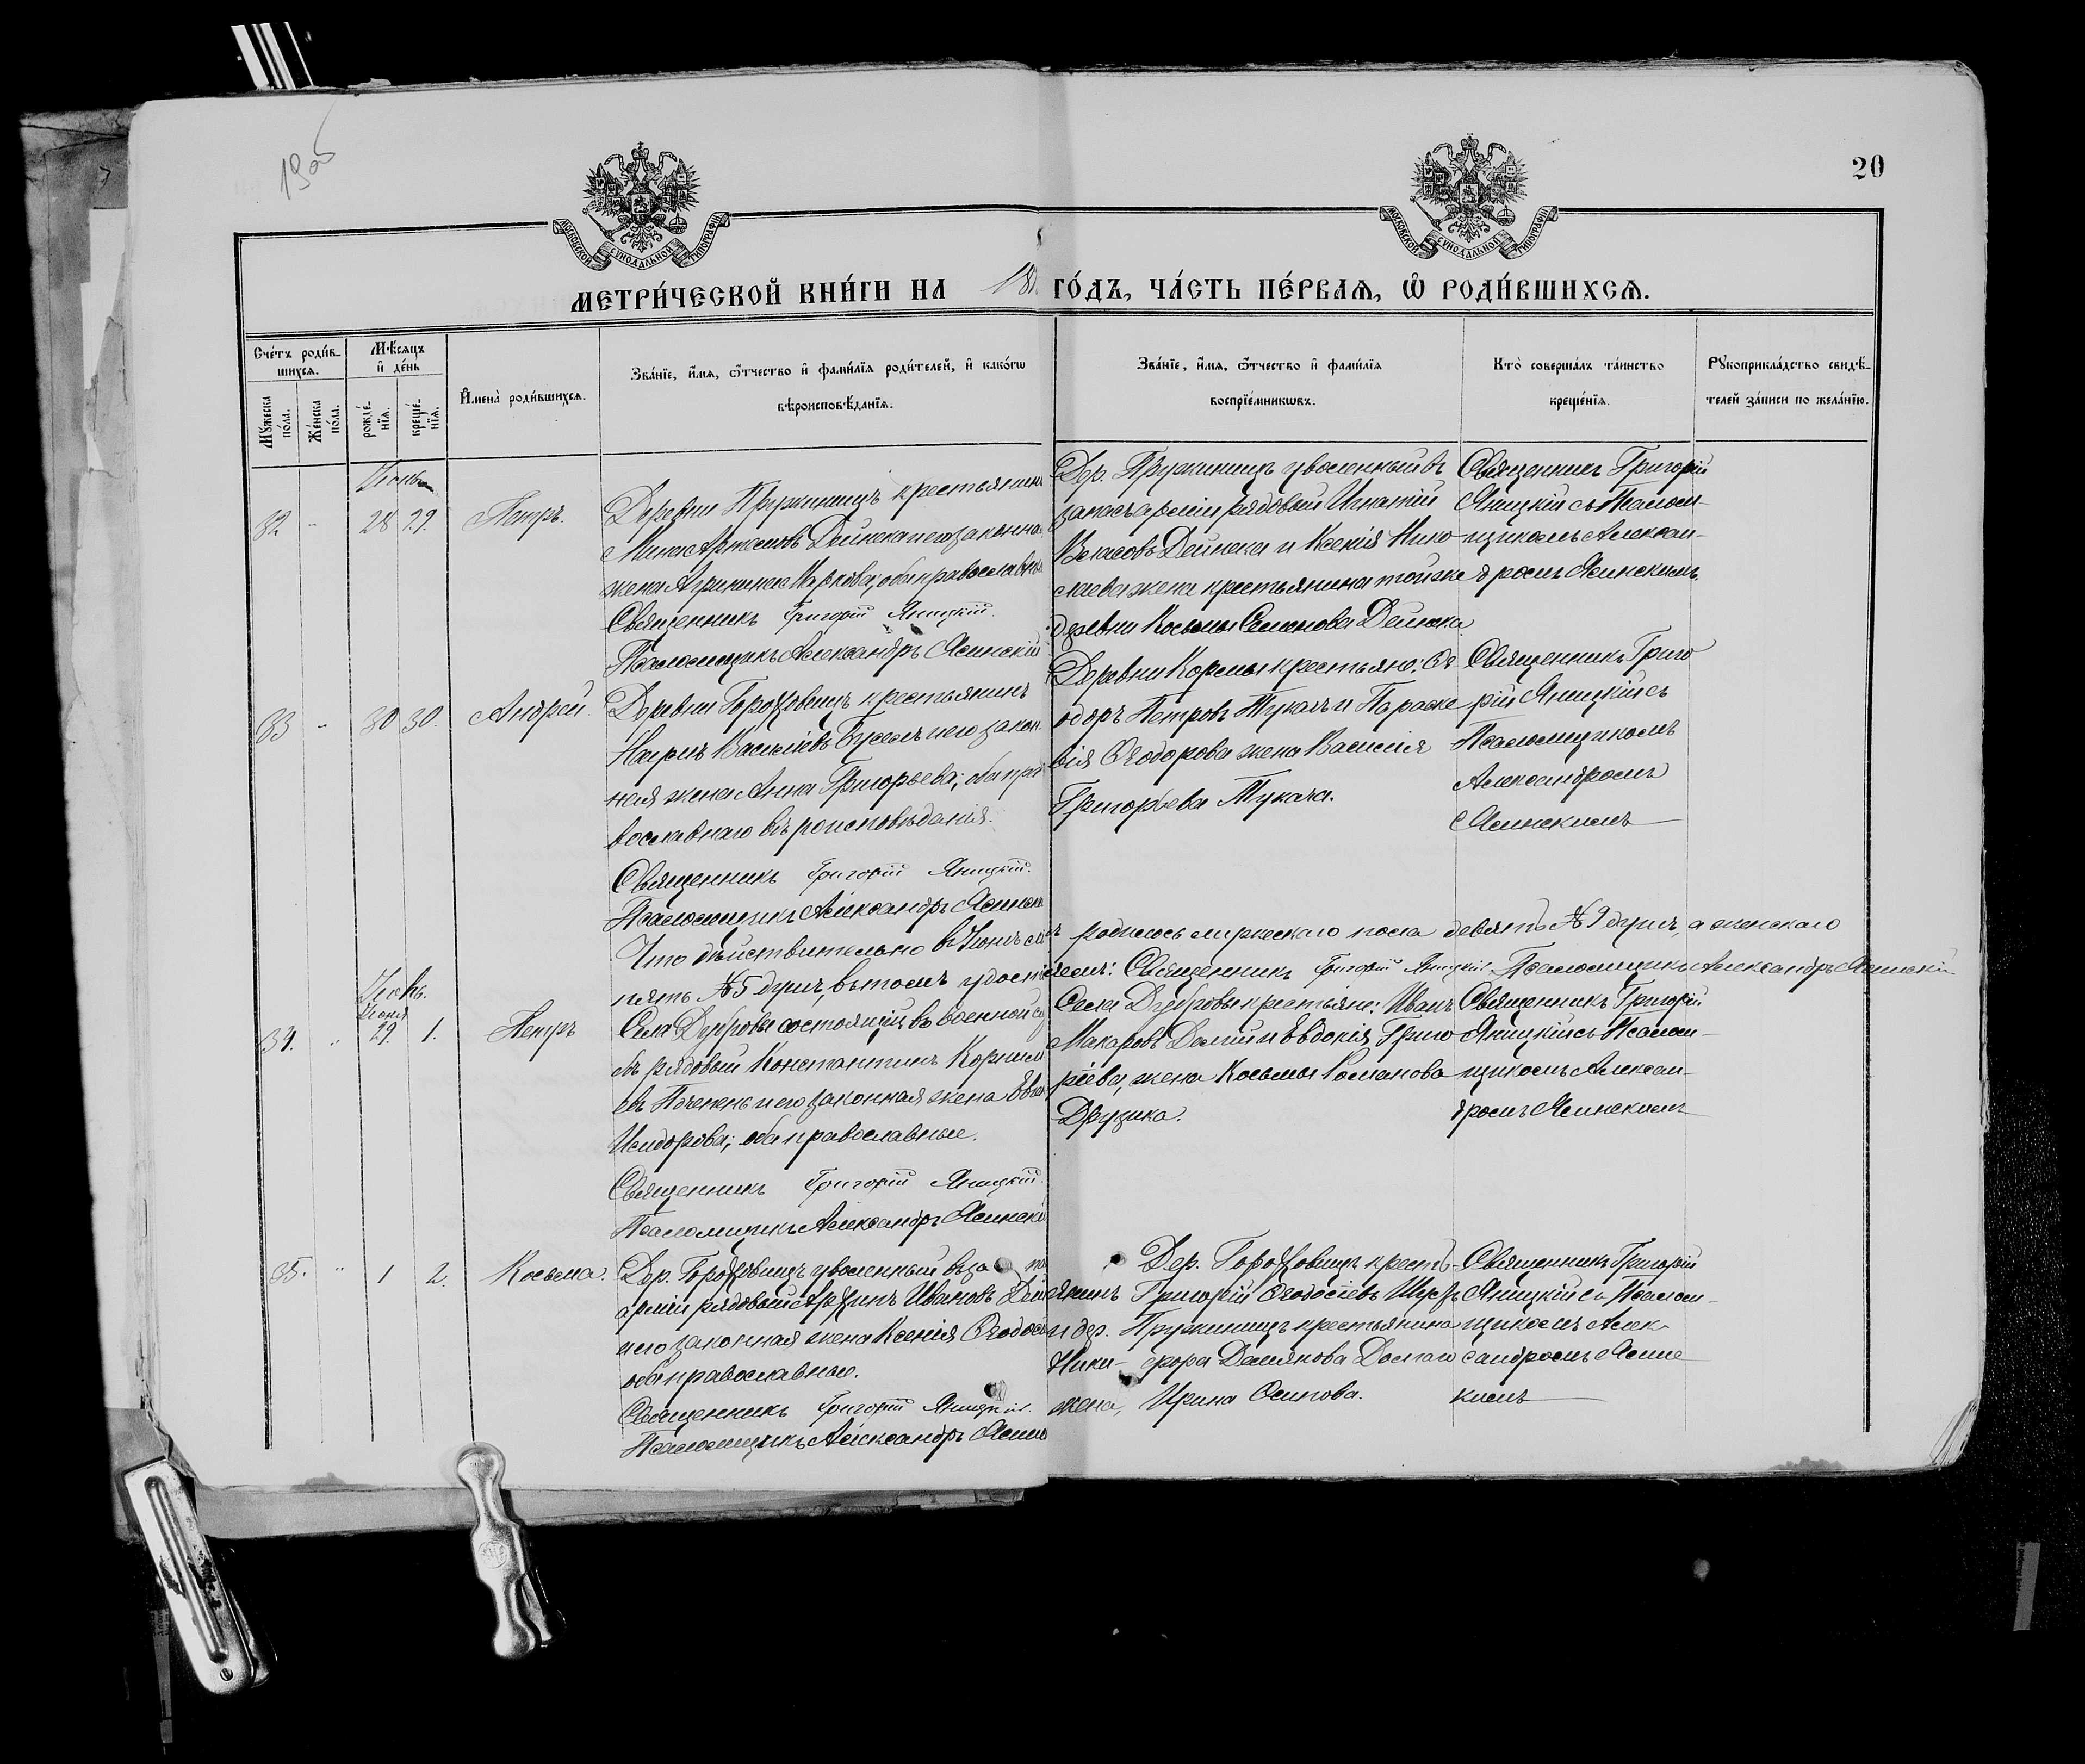 1905
20
МОСКОВСКОЙ СѴНОДАЛЬНОЙ ТИПОГРАФІИ
МОСКОВСКОЙ СѴНОДАЛЬНОЙ ТИПОГРАФІИ
МЕТРИ́ЧЕСКОЙ КНИ́ГИ НА 18 ГО́ДЪ, ЧА́СТЬ ПЕ́РВАѦ, Ѡ҆ РОДИ́ВШИХСѦ.
Сче́тъ роди́в-
шихсѧ.
Мꙋ́жеска по́ла.
Же́нска по́ла.
Мѣ́сѧцъ
и҆ де́нь
рожде́-
нїѧ.
креще́-
нїѧ.
И҆мена̀ роди́вшихсѧ.
Зва́нїе, и҆́мѧ, ѻ҆́тчество и҆ фами́лїѧ роди́телей, и҆ како́гѡ
вѣроисповѣ́данїѧ.
Зва́нїе, и҆́мѧ, ѻ҆́тчество и҆ фами́лїѧ
воспрїе́мникѡвъ.
Кто̀ соверша́лъ та́инство
креще́нїѧ.
Рꙋкоприкла́дство свидѣ́-
телей за́писи по жела́нїю.
Июнь
32 " 28 29. Петръ.
Деревни Пружинищъ крестьянинъ
Мина Артемовъ Дейнека и его законна
жена Агрипина Маркова; оба православны
Священникъ Григорій Яницкій.
Псаломщикъ Александръ Ясинскій
Дер. Пружинищъ уволенный въ
запасъ арміи рядовый Игнатій
Власовъ Дейнека и Ксенія Нико
лаева жена крестьянина той же
деревни Косьмы Семенова Дейнека
Священникъ Григорій
Яницкій съ Псалом-
щикомъ Алексан-
дромъ Ясинскимъ.
33 " 30 30. Андрей.
Деревни Городовищъ крестьянинъ
Наумъ Васильевъ Бусел и его закон
ная жена Анна Григорьева; оба пра
вославнаго вѣроисповѣданія.
Священникъ Григорій Яницкій.
Псаломщикъ Александръ Ясинск
Деревни Кормы крестьяне: Ѳе
одоръ Петровъ Тукачъ и Параске
вія Ѳеодорова жена Василія
Григорьева Тукача.
Священникъ Григо
рій Яницкій съ
Псаломщикомъ
Александромъ
Ясинскимъ
Что дѣйствительно въ Іюнѣ мѣ родилось мужескаго пола девять № 9 душъ, а женскаго
пять № 5 душъ, въ томъ удостовѣряемъ: Священникъ Григорій Яницкій Псаломщикъ Александръ Ясинскій
Июль.
Июня
34. " 29. 1. Петръ
Села Дубровы состоящій въ военной сл
бѣ рядовый Константинъ Корнил
евъ Печень и его законная жена Евдо
Исидорова; оба православные.
Священникъ Григорій Яницкій.
Псаломщикъ Александръ Ясинскі
Села Дубровы крестьяне: Иванъ
Макаровъ Демии и Евдокія Григо
ріева, жена Косьмы Романова
Друзика.
Священникъ Григорій
Яницкій съ Псалом-
щикомъ Алексан-
дромъ Ясинскимъ
35. " 1 2. Косьма.
Дер. Городовищъ уволенный въ за
арміи рядовый Ивановъ
и его законная жена Ксенія Ѳеодос
оба православные.
Священникъ Григорій Яницкій.
Псаломщикъ Александръ Ясин
Дер. Городовищъ кресть-
янинъ Григорій Ѳеодосіевъ
и дер. Пружинищъ крестьянина
Ники- фора Демянова Долгаго
жена, Ирина Осипова.
Священникъ Григорій
Яницкій съ Псалом-
щикомъ Алек-
сандромъ Ясин
скимъ